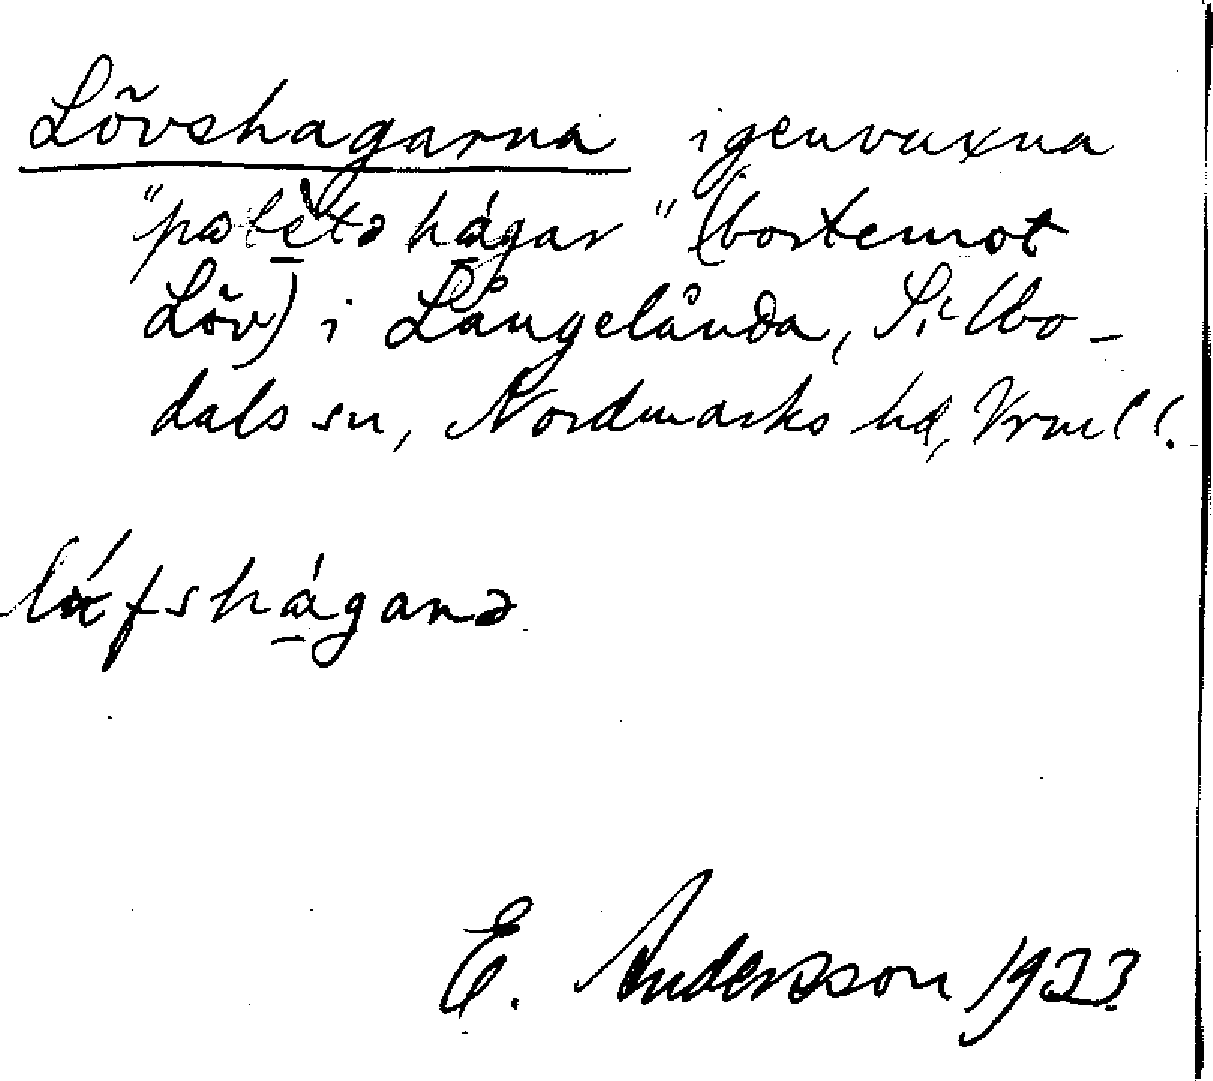 Lövshagarna igenvuxna
"potètə hágar" (bortemot
Löv) i Långelanda, Sillbo-
dals sn, Nordmarks hd, Vrml.
hágarnə
E. Andersson 1933.